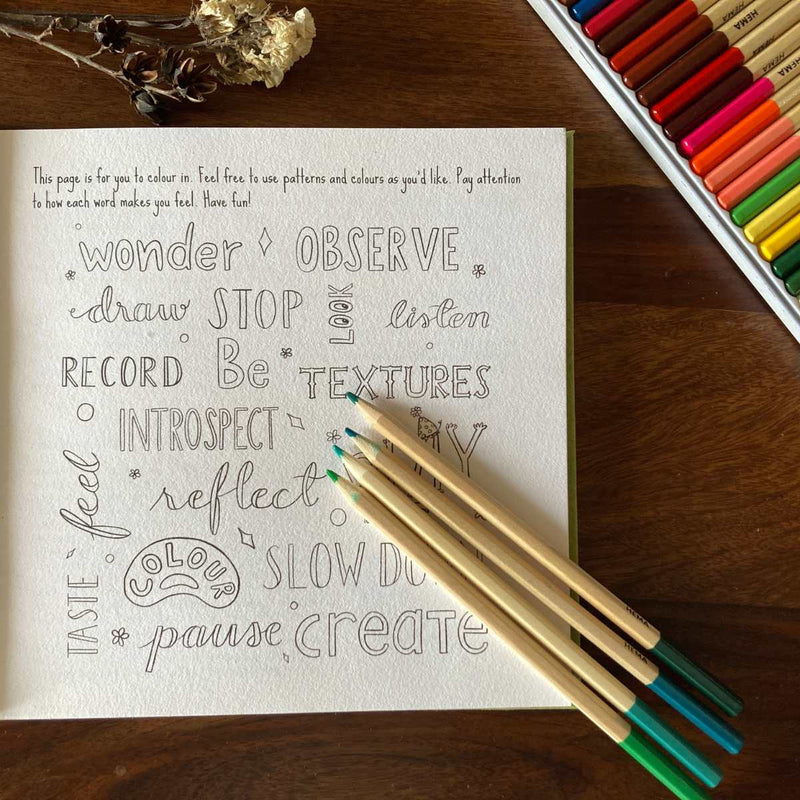 This page is for you to colour in. Feel free to use patterns and colours as you'd like. Pay attention
to how each word makes you feel. Have fun!
wonder OBSERVE
draw STOP LOOK listen
RECORD Be TEXTURES
INTROSPECT
feel reflect
TASTE COLOUR SLOW
pause create
HEMA
HEMA
HEMA
HEMA
HEMA
HEMA